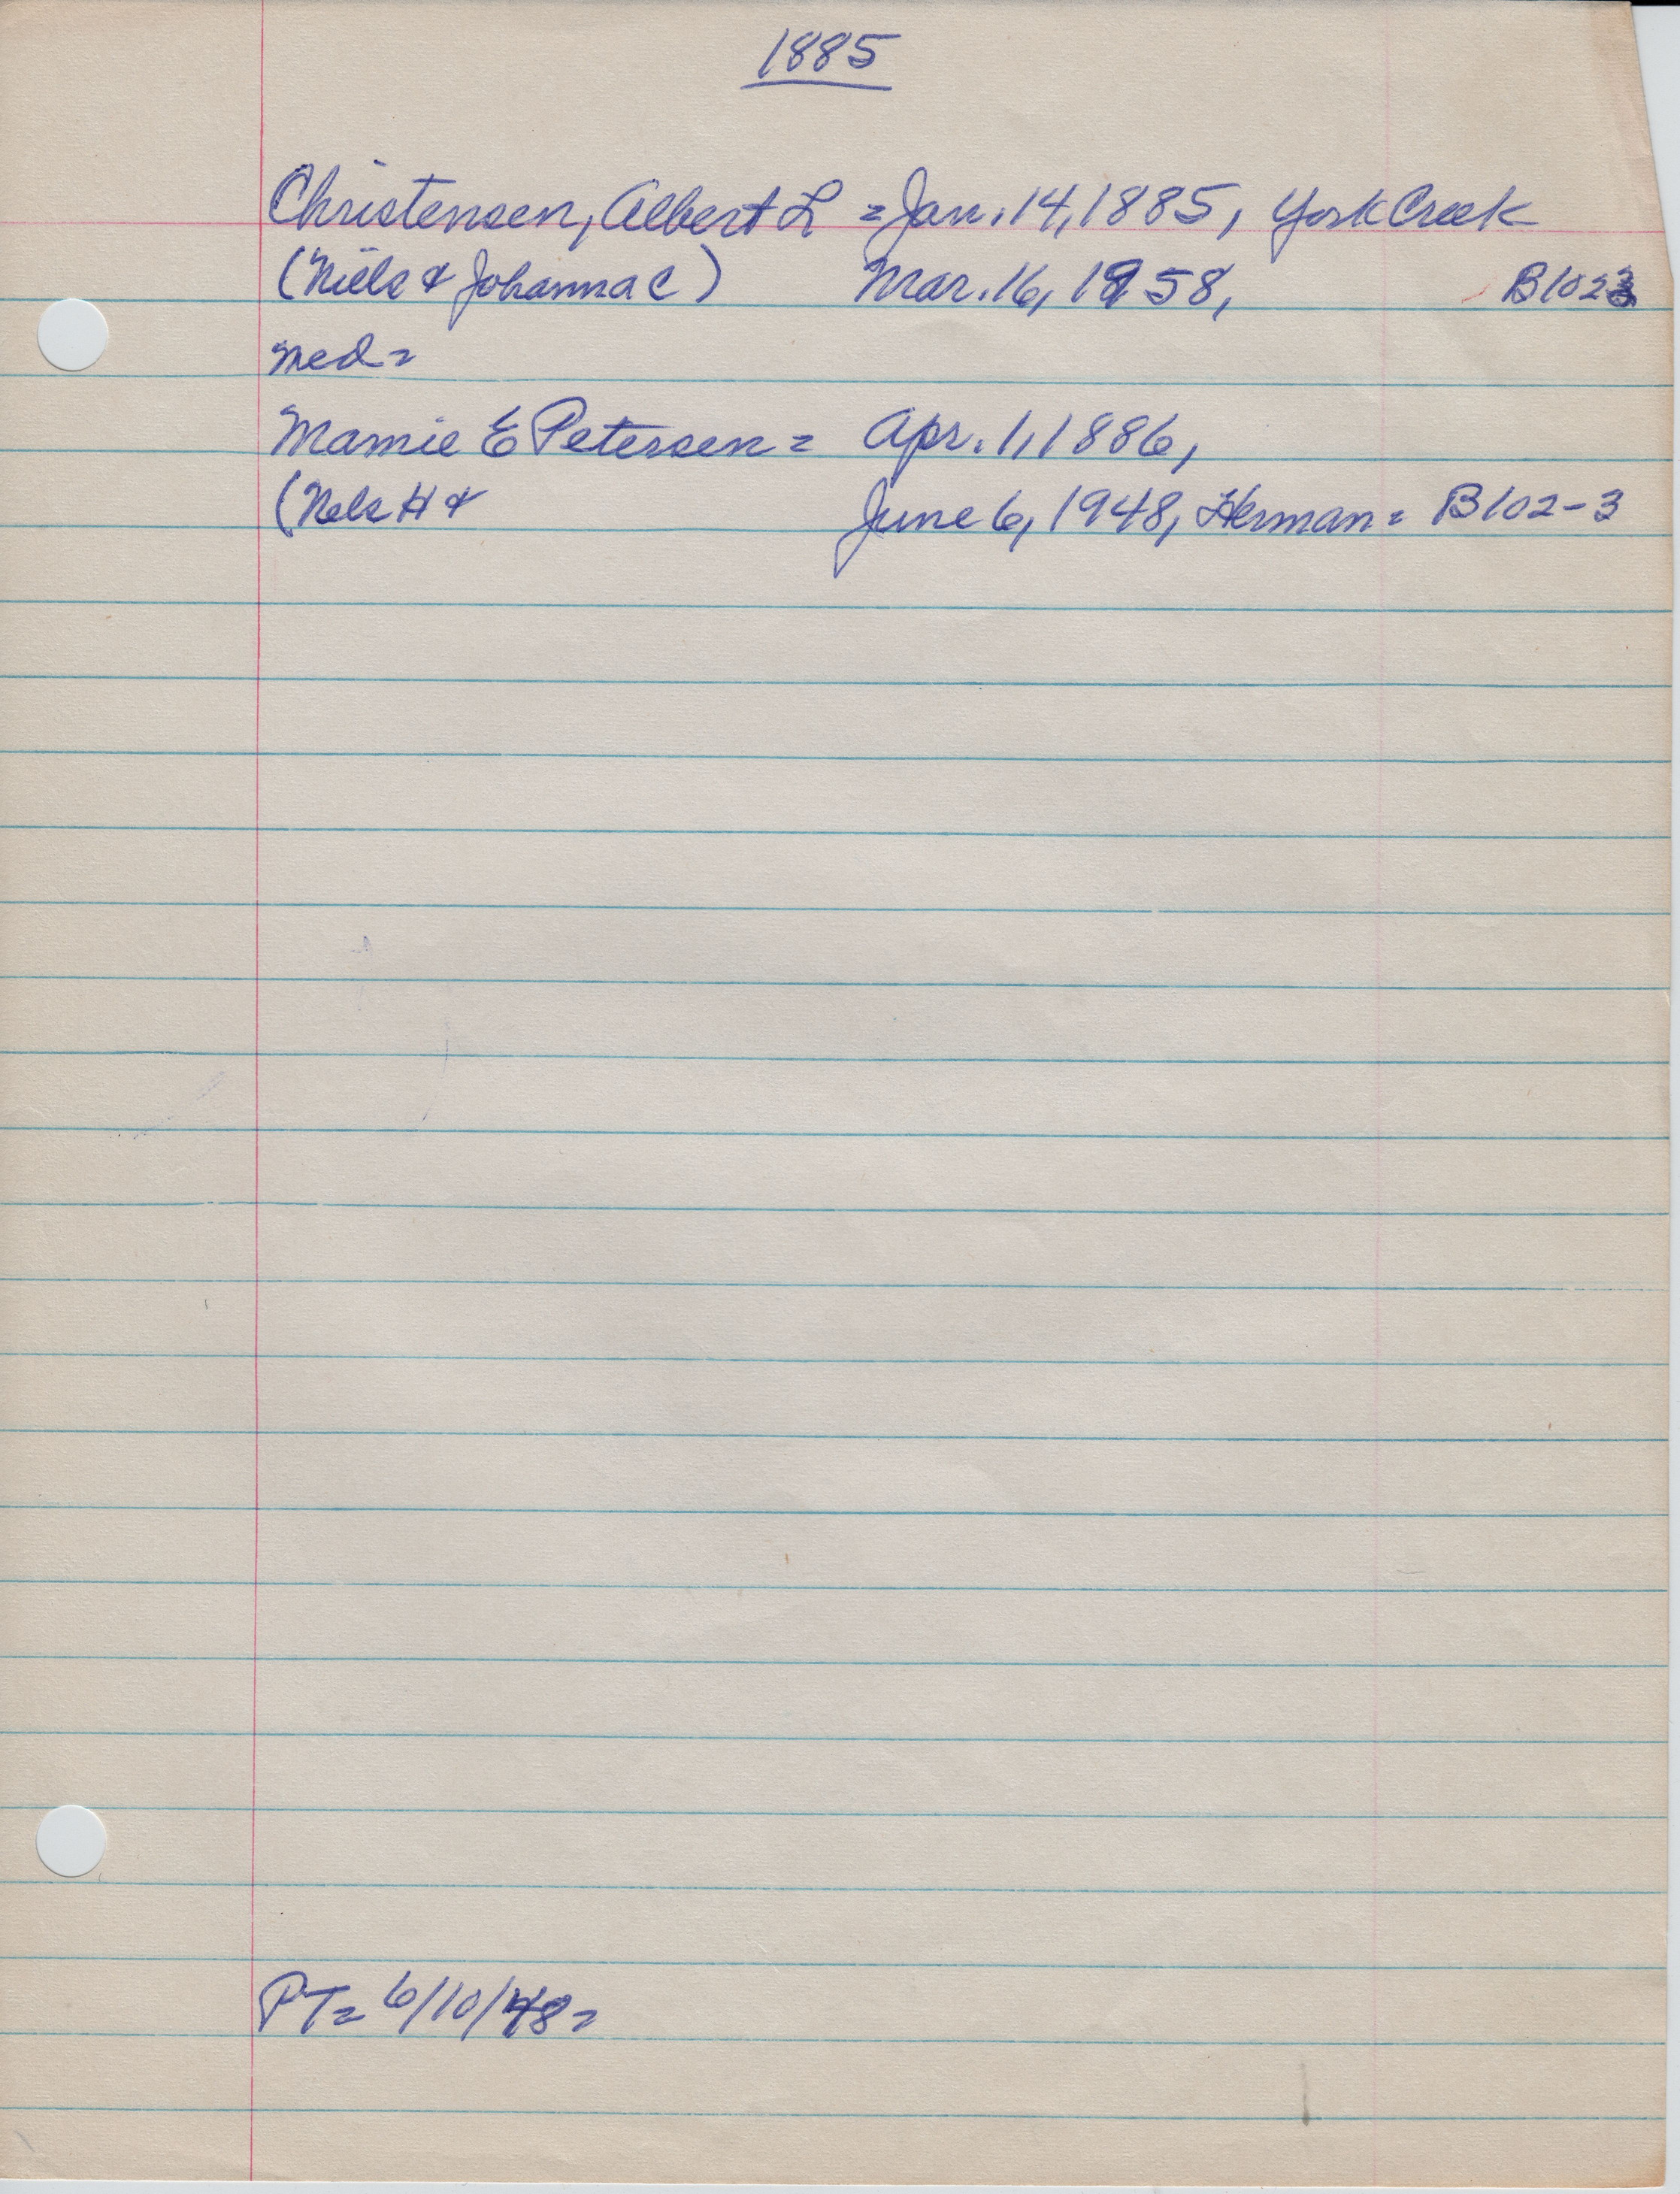 1885
Christensen, Albert L = Jan. 14, 1885, York Creek
(Niels & Johanna C) Mar. 16, 1958, B1023
Med =
Mamie E Petersen = Apr. 1, 1886,
(Nels H & June 6, 1948, Herman = B102-3
PT= 6/10/48 =